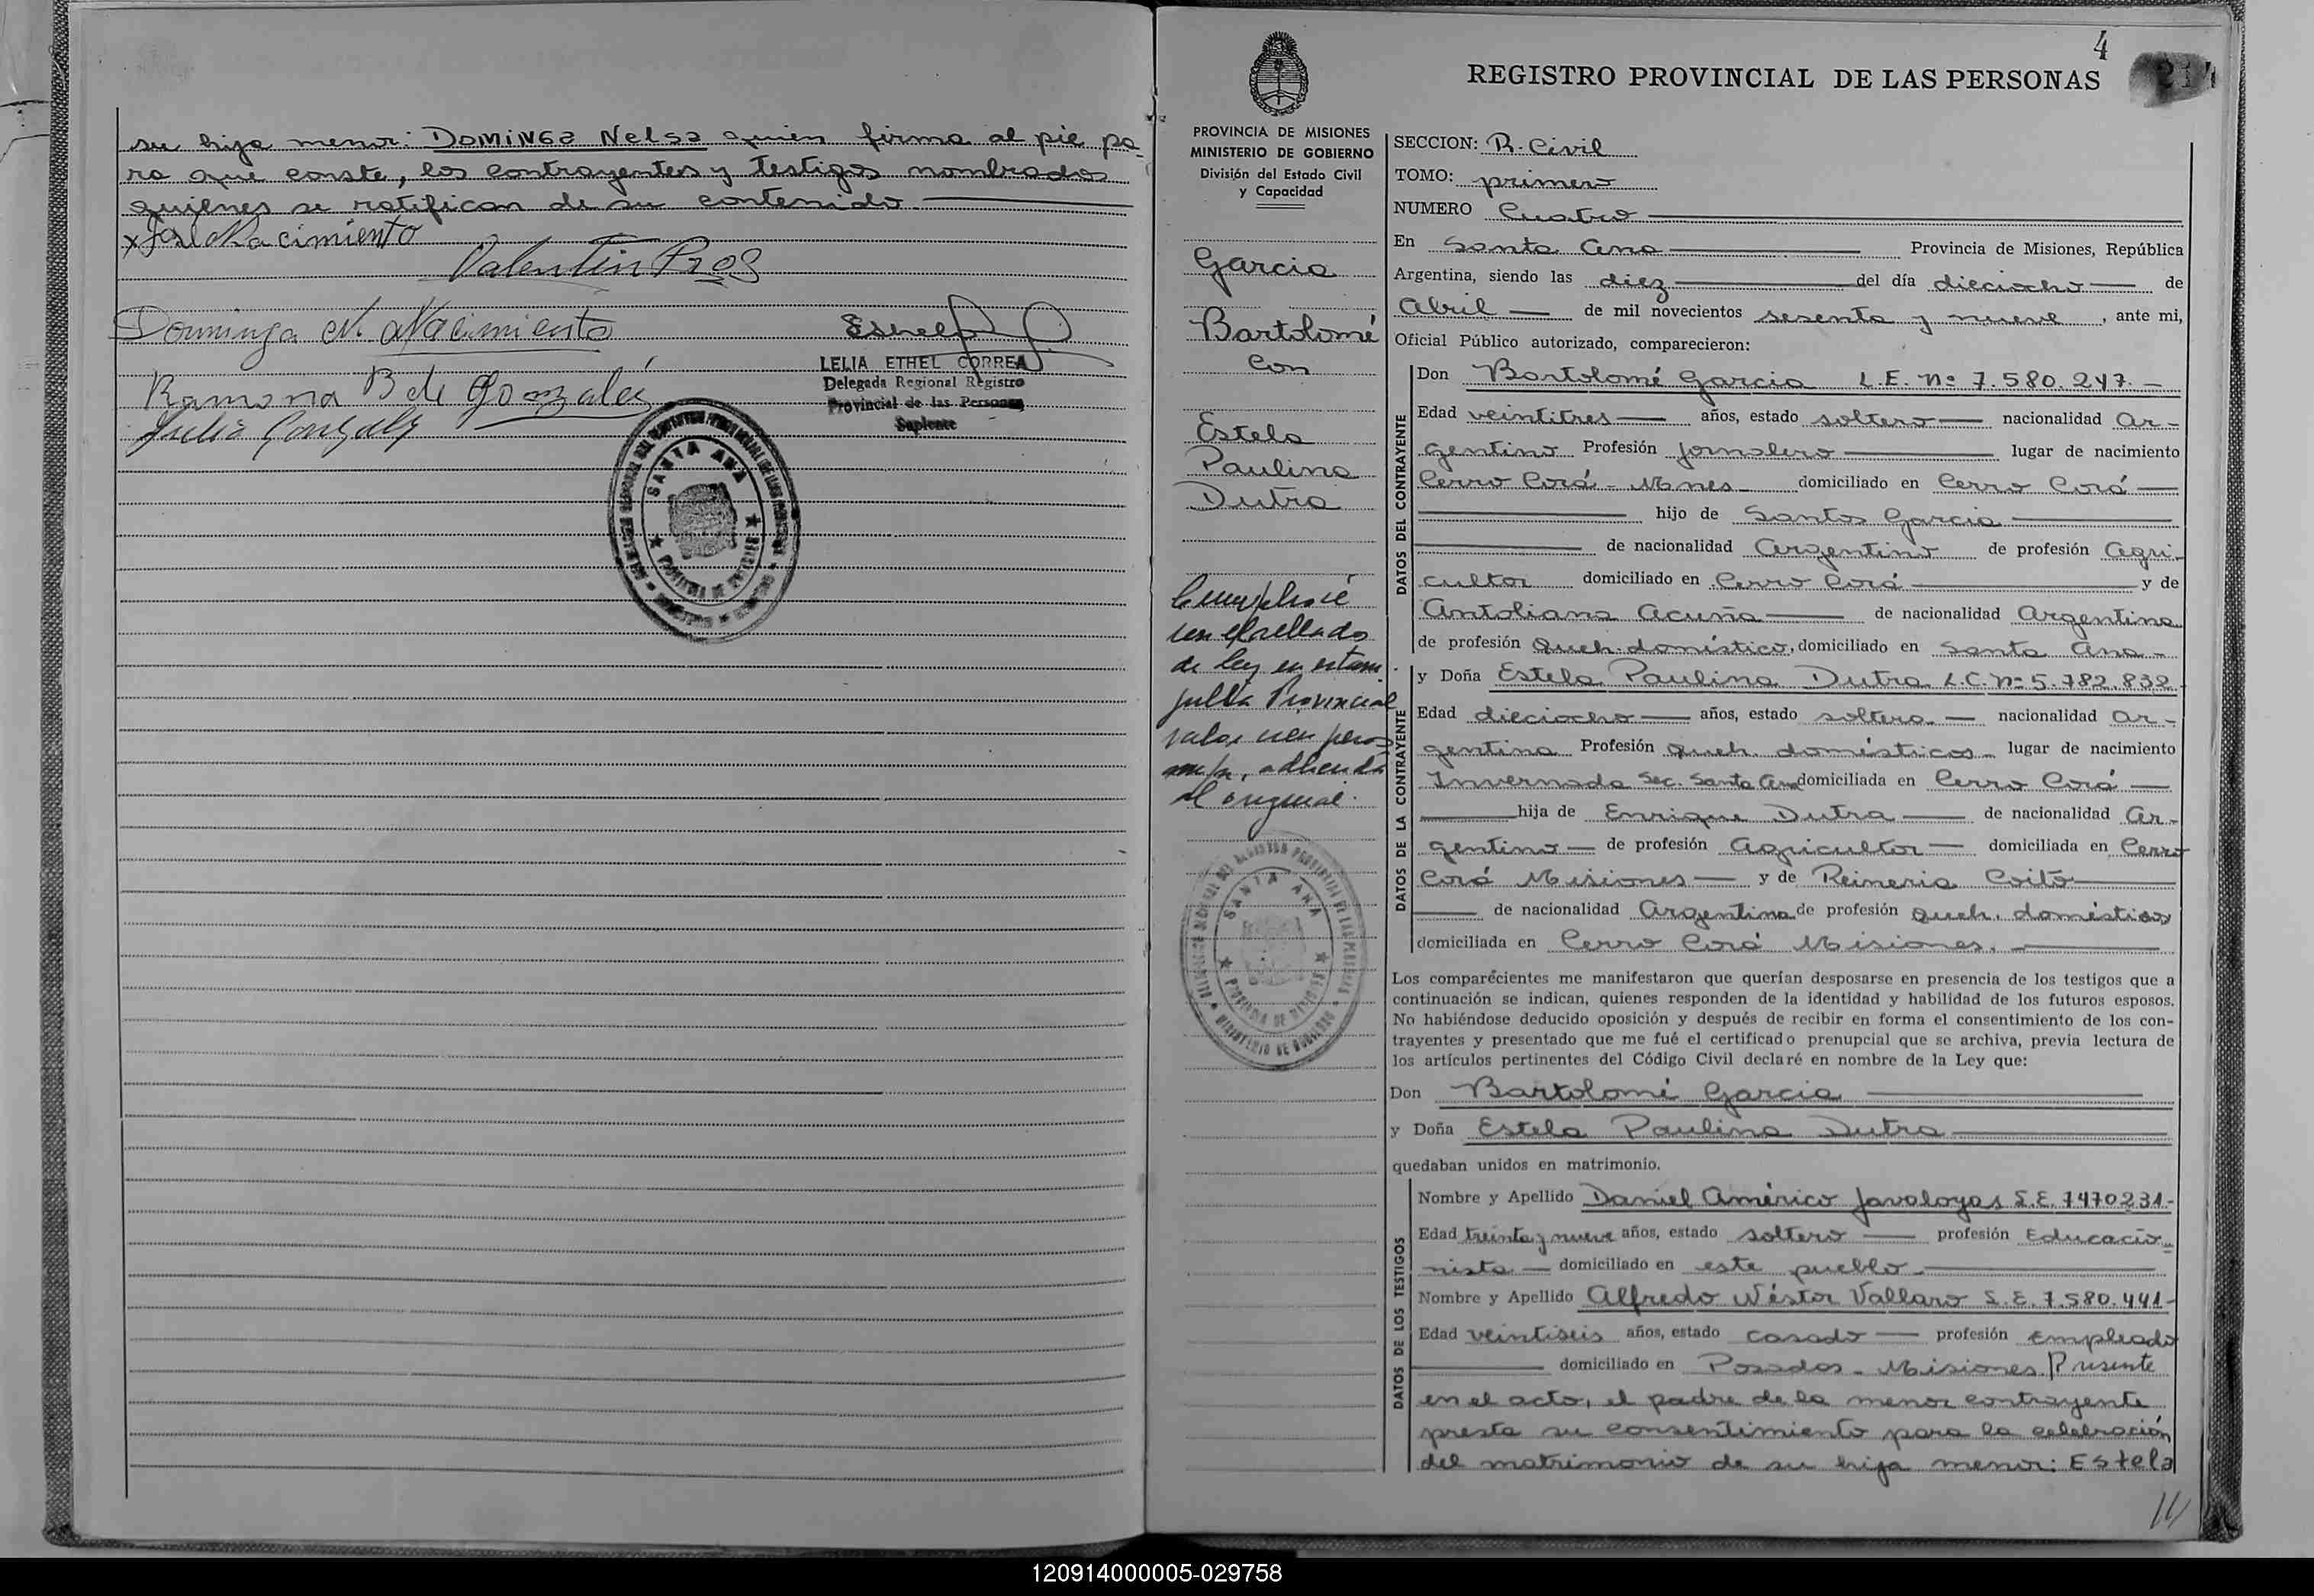 su hija menor: DOMINGA Nelsa quien firma al pie pa-
ra que conste, los contrayentes y testigos nombrados
quienes se ratifican de su contenido
x José Nacimiento
Valentin
Dominga N. Nacimiento
LELIA ETHEL CORREA
Delegada Regional Registro
Provincial de las Personas
Suplente
Ramona B de Gonzalez
Julio Gonzalez
SANTA ANA
PROVINCIA DE MISIONES
4
REGISTRO PROVINCIAL DE LAS PERSONAS
214
PROVINCIA DE MISIONES
MINISTERIO DE GOBIERNO
División del Estado Civil
y Capacidad
Garcia
Bartolomé
Con
Estela
Paulina
Dutra
Cumplioé
con el sellado
de ley en estam
pilla Provincial
valor cien pesos
m/n, adherida
al original.
SANTA ANA
PROVINCIA DE MISIONES
MINISTERIO DE GOBIERNO
SECCION: R. Civil
TOMO: primero
NUMERO Cuatro
En Santa Ana Provincia de Misiones, República
Argentina, siendo las diez del día dieciocho de
Abril de mil novecientos sesenta y nueve, ante mi,
Oficial Público autorizado, comparecieron:
DATOS DEL CONTRAYENTE
Don Bartolomé Garcia L.E. nº 7.580.247.-
Edad veintitres años, estado soltero nacionalidad Ar-
gentino Profesión jornalero lugar de nacimiento
Cerro Corá - Mnes domiciliado en Cerro Corá
hijo de Santos Garcia
de nacionalidad Argentino de profesión Agri-
cultor domiciliado en Cerro Corá y de
Antoliana Acuña de nacionalidad Argentina
de profesión Queh. doméstico, domiciliado en Santa Ana-
DATOS DE LA CONTRAYENTE
y Doña Estela Paulina Dutra L.C. nº 5.782.832
Edad dieciocho años, estado soltera nacionalidad Ar-
gentina Profesión queh. domésticos lugar de nacimiento
Invernada Sec. Santa Ana domiciliada en Cerro Corá
hija de Enrique Dutra de nacionalidad Ar-
gentino de profesión Agricultor domiciliada en Cerro
Corá Misiones y de Reineria Coito
de nacionalidad Argentina de profesión queh. domésticos
domiciliada en Cerro Corá Misiones.
Los comparécientes me manifestaron que querían desposarse en presencia de los testigos que a
continuación se indican, quienes responden de la identidad y habilidad de los futuros esposos.
No habiéndose deducido oposición y después de recibir en forma el consentimiento de los con-
trayentes y presentado que me fué el certificado prenupcial que se archiva, previa lectura de
los artículos pertinentes del Código Civil declaré en nombre de la Ley que:
Don Bartolomé Garcia
y Doña Estela Paulina Dutra
quedaban unidos en matrimonio.
DATOS DE LOS TESTIGOS
Nombre y Apellido Daniel Américo Javaloyas L.E. 7470231-
Edad treinta y nueve años, estado soltero profesión Educacio-
nista domiciliado en este pueblo
Nombre y Apellido Alfredo Néstor Vallaro L.E. 7.580.441-
Edad veintiseis años, estado casado profesión Empleado
domiciliado en Posadas - Misiones. Presente
en el acto, el padre de la menor contrayente
presta su consentimiento para la celebración
del matrimonio de su hija menor: Estela
120914000005-029758